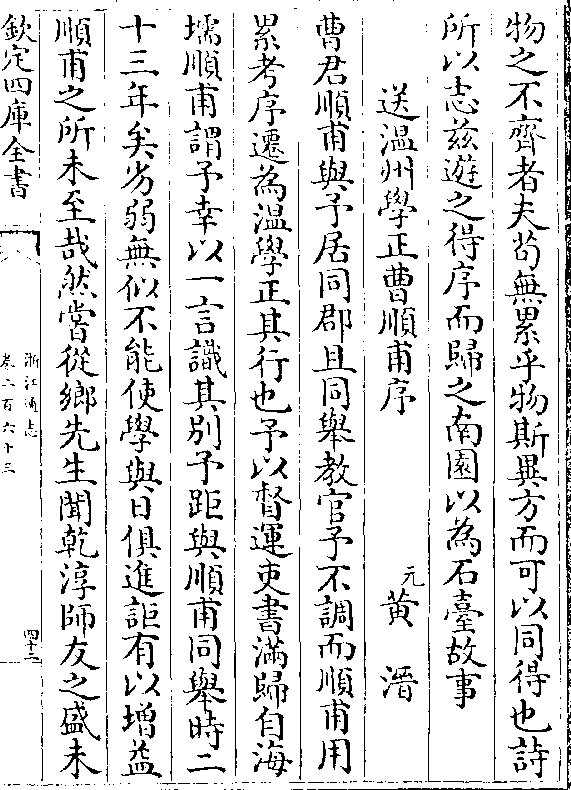 物之不齊者夫苟無累乎物斯異方而可以同得也詩
所以志茲遊之得序而歸之南園以為石臺故事
送温州學正曹順甫序
元黄溍
曹君順甫與予居同郡且同舉教官予不調而順甫用
累考序遷為温學正其行也予以督運吏書滿歸自海
壖順甫謂予幸以一言識其别予距與順甫同舉時二
十三年矣劣弱無似不能使學與日俱進詎有以增益
順甫之所未至哉然嘗從鄉先生聞乾淳師友之盛未
欽定四庫全書
浙江通志
卷二百六十三
四十二